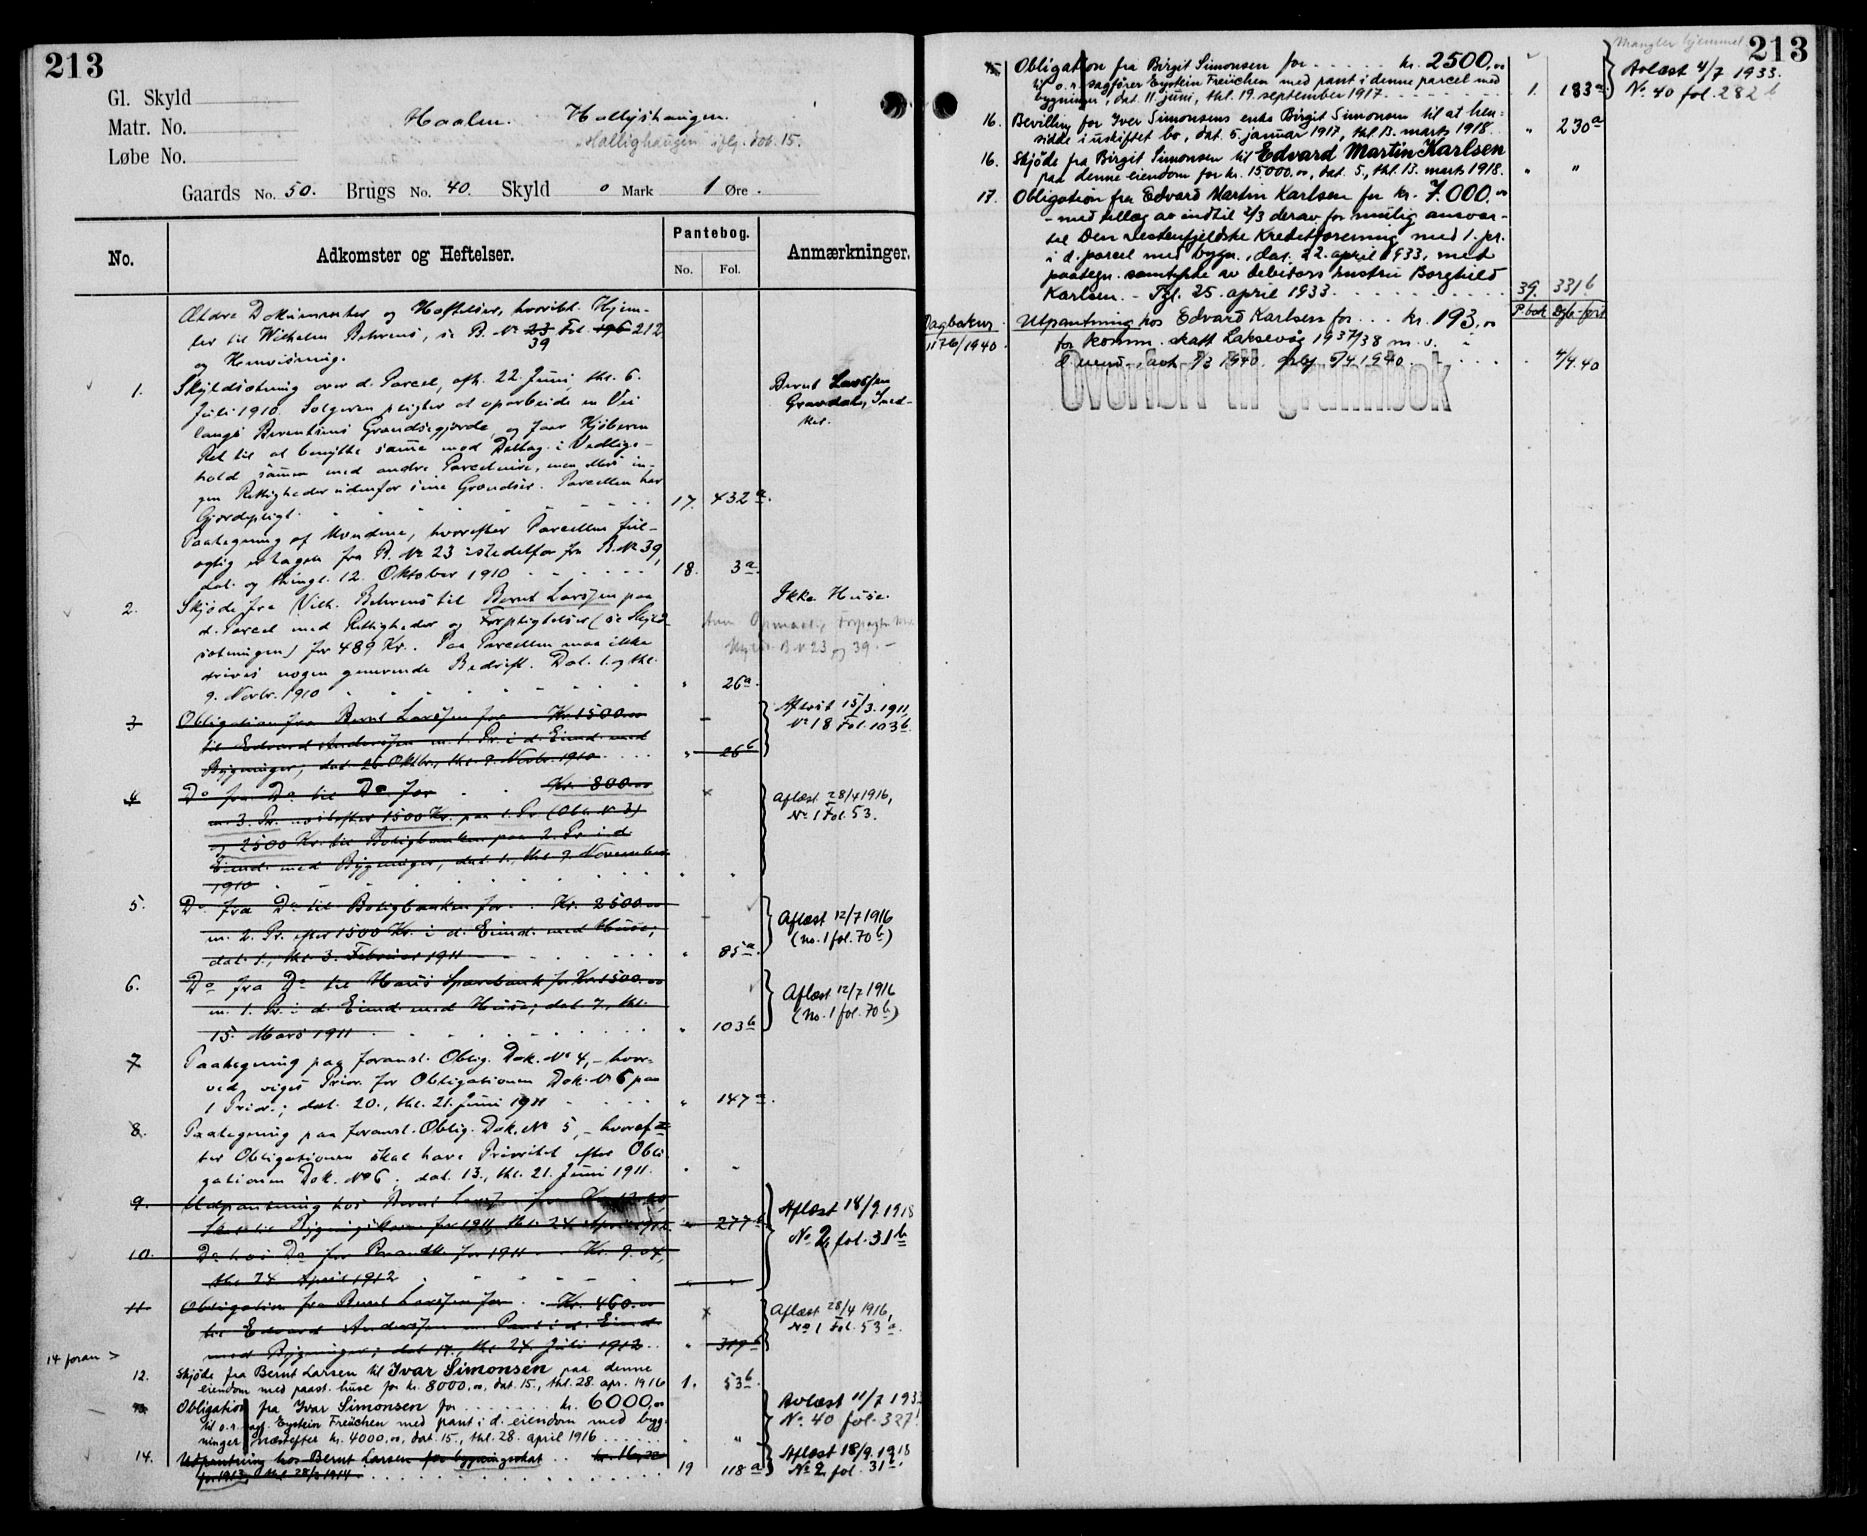 213
Gl. Skyld
Matr. No.
Løbe No.
Haalen. Hallijshaugen.
"Hallighaugen" iflg. dok. 15.
Gaards No. 50. Brugs No. 40. Skyld " Mark 1 Øre.
No.
Adkomster og Heftelser.
Pantebog.
No. Fol.
Anmærkninger.
Ældre Dokumenter og Heftelser, hvoribl. Hjem-
ler til Wilhelm Behrens, se B. No 23 Fol. 196 212
39
og Henvisning.
1. Skyldsætning over d. Parcel, afh. 22. Juni, thl. 6.
Juli 1910. Sælgeren pligter at oparbeide en Vei
langs Berentsens Grændsegjærde, og faar Kjøberen
Ret til at benytte samme mod Deltag. i Vedlige-
hold sammen med andre Parceleiere, men ellers in-
gen Rettigheder udenfor sine Grændser. Parcellen har
Gjerdepligt. 17. 432a.
Bernt Larssen
Gravdal, Sned-
ker.
Paategning af Mændene, hvorefter Parcellen fuld-
agtig er tagen fra B. No 23 istedetfor fra B. No 39,
dat. og thingl. 12. Oktober 1910 18. 3a.
2. Skjøde fra Vilh. Behrens til Bernt Larssen paa
d. Parcel med Rettigheder og Forpligtelser (se Skyld-
sætningen) for 489 Kr. Paa Parcellen maa ikke
drives nogen generende Bedrift. Dat. 1. og thl.
9. Novbr. 1910 " 26a.
Ikke Huse.
B. No 23 og 39.
3 Obligation fra Bernt Larssen for Kr. 1500.00
til Edvard Anderssen m. 1. Pr. i d. Eiend. med
Bygninger, dat. 26. Oktbr., thl. 9. Novbr. 1910 " 26b
Aflæst 15/3. 1911,
No 18 Fol. 103b.
4 Do fra Do til Do for Kr. 800.00
m. 3. Pr. næstefter 1500 Kr. paa 1. Pr. (Obl. No 3)
og 2500 Kr. til Boligbanken paa 2. Pr. i d.
Eiend. med Bygninger, dat. 1., thl. 9. November
1910 " "
Aflæst 28/4 1916,
No. 1 Fol. 53.
5. Do fra Do til Boligbanken for Kr. 2500.00
m. 2. Pr. efter 1500 Kr. i d. Eiend. med Huse,
dat. 1., thl. 3. Februar 1911 " 85a.
Aflæst 12/7 1916
(No. 1 fol. 70b)
6. Do fra Do til Haus Sparebank for Kr. 1500.00
m. 1. Pr. i d. Eiend. med Huse; dat. 7., thl.
15. Mars 1911 " 103b
Aflæst 12/7 1916
(No. 1 fol. 70b)
7 Paategning paa foranst. Oblig. Dok. No 4, - hvor-
ved viges Prior. for Obligationen Dok. No 6 paa
1 Prior.; dat. 20., thl. 21. Juni 1911 " 147a.
8. Paategning paa foranst. Oblig. Dok. No 5, - hvoref-
ter Obligationen skal have Prioritet efter Obli-
gationen Dok. No 6; dat. 13., thl. 21. Juni 1911. " "
9. Udpantning hos Bernt Larssen for Kr.
for 1911, thl. 24. April 1912 " 277b
Aflæst 18/9. 1918
No. 2, fol. 31b
10. Do hos Do for 1911 Kr. 9.04,
thl. 24. April 1912 " "
11 Obligation fra Bernt Larssen for Kr. 460.00
til Edvard Anderssen m. Pant i d. Eiend.
med Bygninger; dat. 17., thl. 24. Juli 1912 " 319b
Aflæst 28/4 1916,
No 1 Fol. 53a.
14 foran >
12. Skjøde fra Bernt Larsen til Ivar Simonsen paa denne
eiendom med paast. huse for kr. 8000.00, dat. 15., thl. 28. apr. 1916 1. 53b.
13. Obligation fra Ivar Simonsen for kr. 6000.00
til o.r. sagf. Eystein Freüchen med pant i d. eiendom med byg-
ninger næstefter kr. 4000.00, dat. 15., thl. 28. april 1916 . "
Avlæst 11/7 1933
No. 40 fol. 327b
14. Utpantning hos Bernt Larsen for bygningsskat kr. 16,32
for 1913, thl. 28/2 1914 19 118a
Aflæst 18/9. 1918
No. 2 fol. 31b.
213
Mangler hjemmel.
15 Obligation fra Birgit Simonsen for kr. 2500,00
til o.r. sagfører Eystein Freüchen med pant i denne parcel med
bygninger, dat. 11 juni, thl. 19. september 1917. 1. 183a
Avlæst 4/7 1933.
No. 40 fol. 282b
16. Bevilling for Iver Simonsens enke Birgit Simonsen til at hen-
sidde i uskiftet bo, dat. 5. januar 1917, thl. 13. marts 1918. " 230a
16. Skjøde fra Birgit Simonsen til Edvard Martin Karlsen
paa denne eiendom for kr. 15000.00, dat. 5., thl. 13. marts 1918. " "
17. Obligation fra Edvard Martin Karlsen for kr. 7.000,00
- med tillæg av indtil 2/3 derav for mulig ansvar -
til Den Vestenfjeldske Kreditforening med 1. pr.
i d. parcel med bygn., dat. 22. april 1933, med
paategn. samtykke av debitors hustru Borghild
Karlsen. - Tgl. 25. april 1933. 39. 331b
P.bok Dgb-ført
Dagboknr.
1176/1940.
Utpantning hos Edvard Karlsen for kr. 193.00
for komm. skatt Laksevåg 1937/38 m. v.
1940. 5/4.1940. 4/4.40
Overført til grunnbok